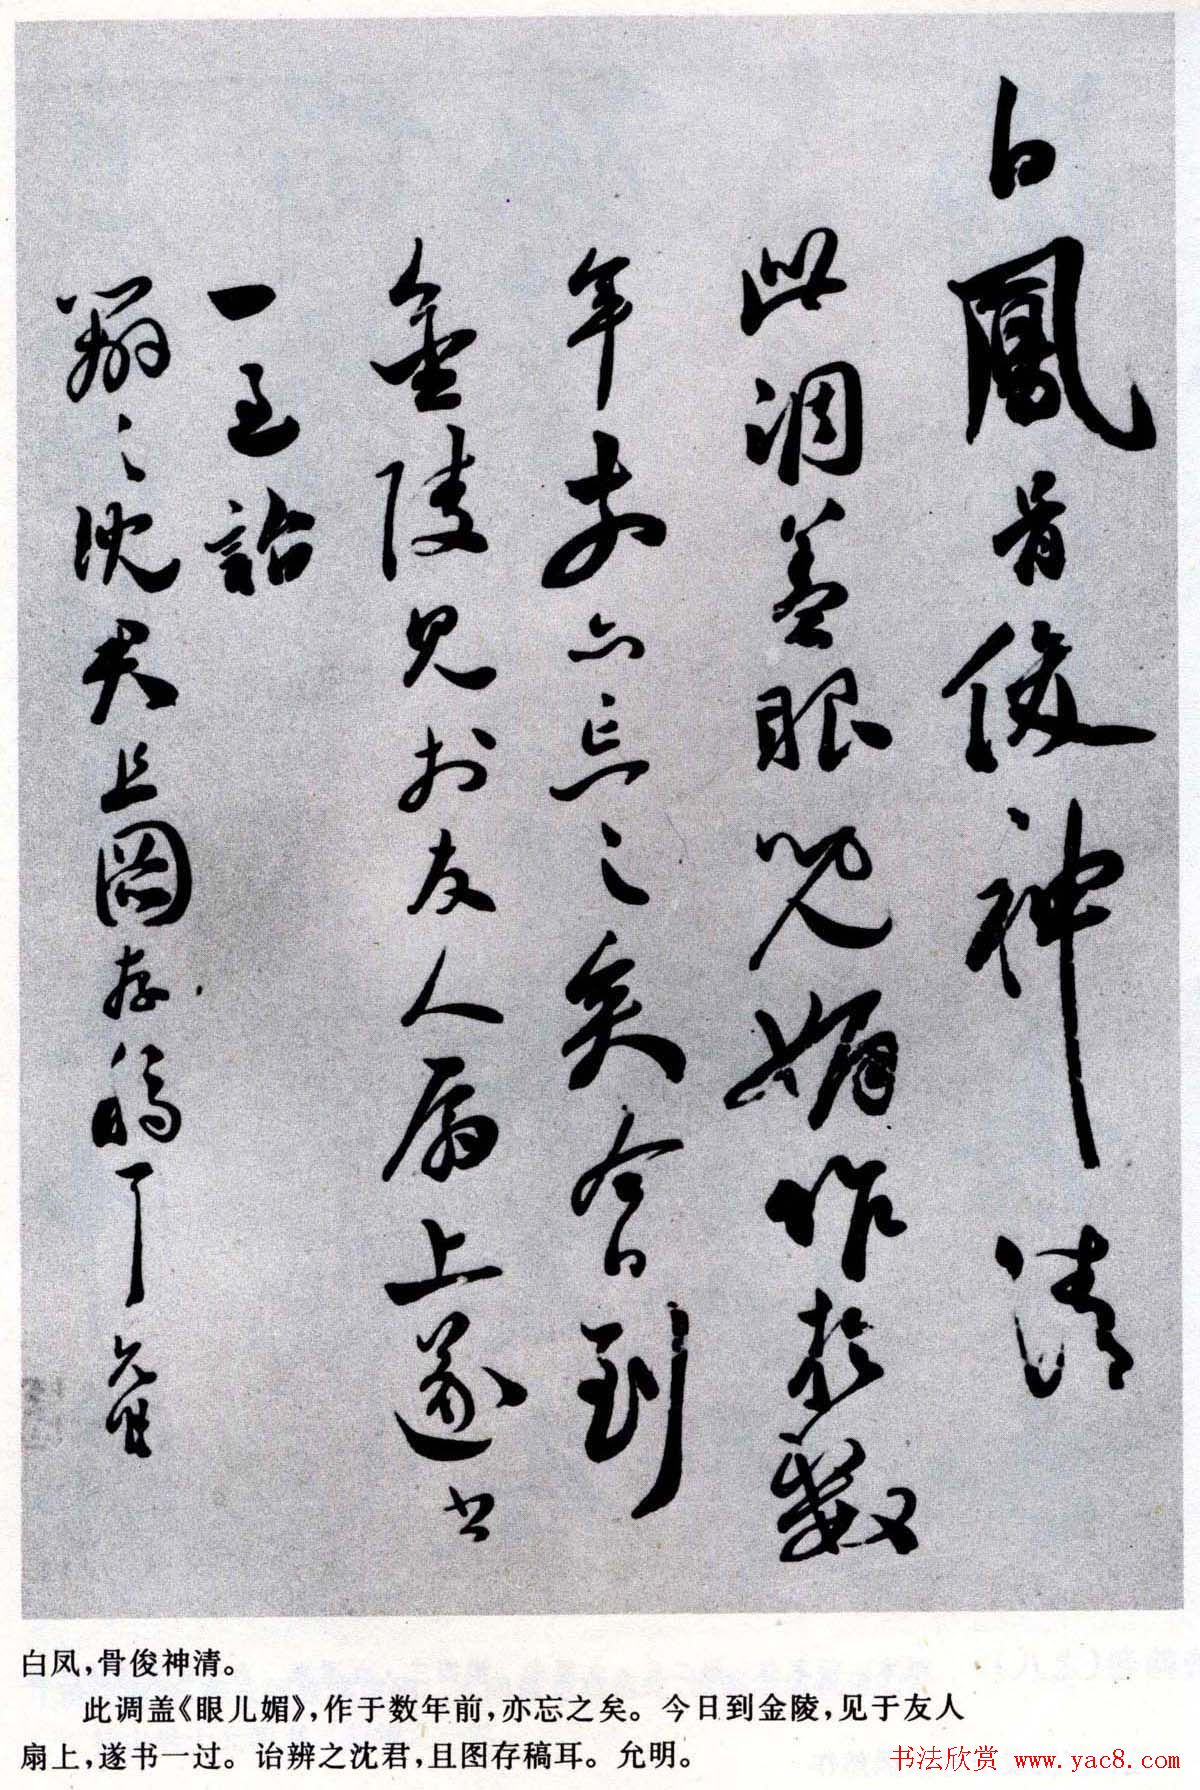 白鳳骨俊神清
此調蓋眼兒媚作於數
年前亦忘之矣今日到
金陵見於友人扇上遂書
一過詒
辨之沈君且圖存稿耳允明
白凤，骨俊神清。
此调盖《眼儿媚》，作于数年前，亦忘之矣。今日到金陵，见于友人
扇上，遂书一过。诒辨之沈君，且图存稿耳。允明。
书法欣赏 www.yac8.com